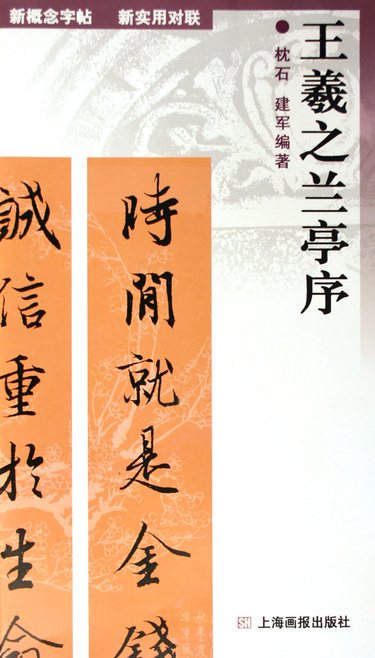 新概念字帖 新实用对联
王羲之兰亭序
枕石 建军编著
時閒就是金錢
誠信重於生命
SH 上海画报出版社